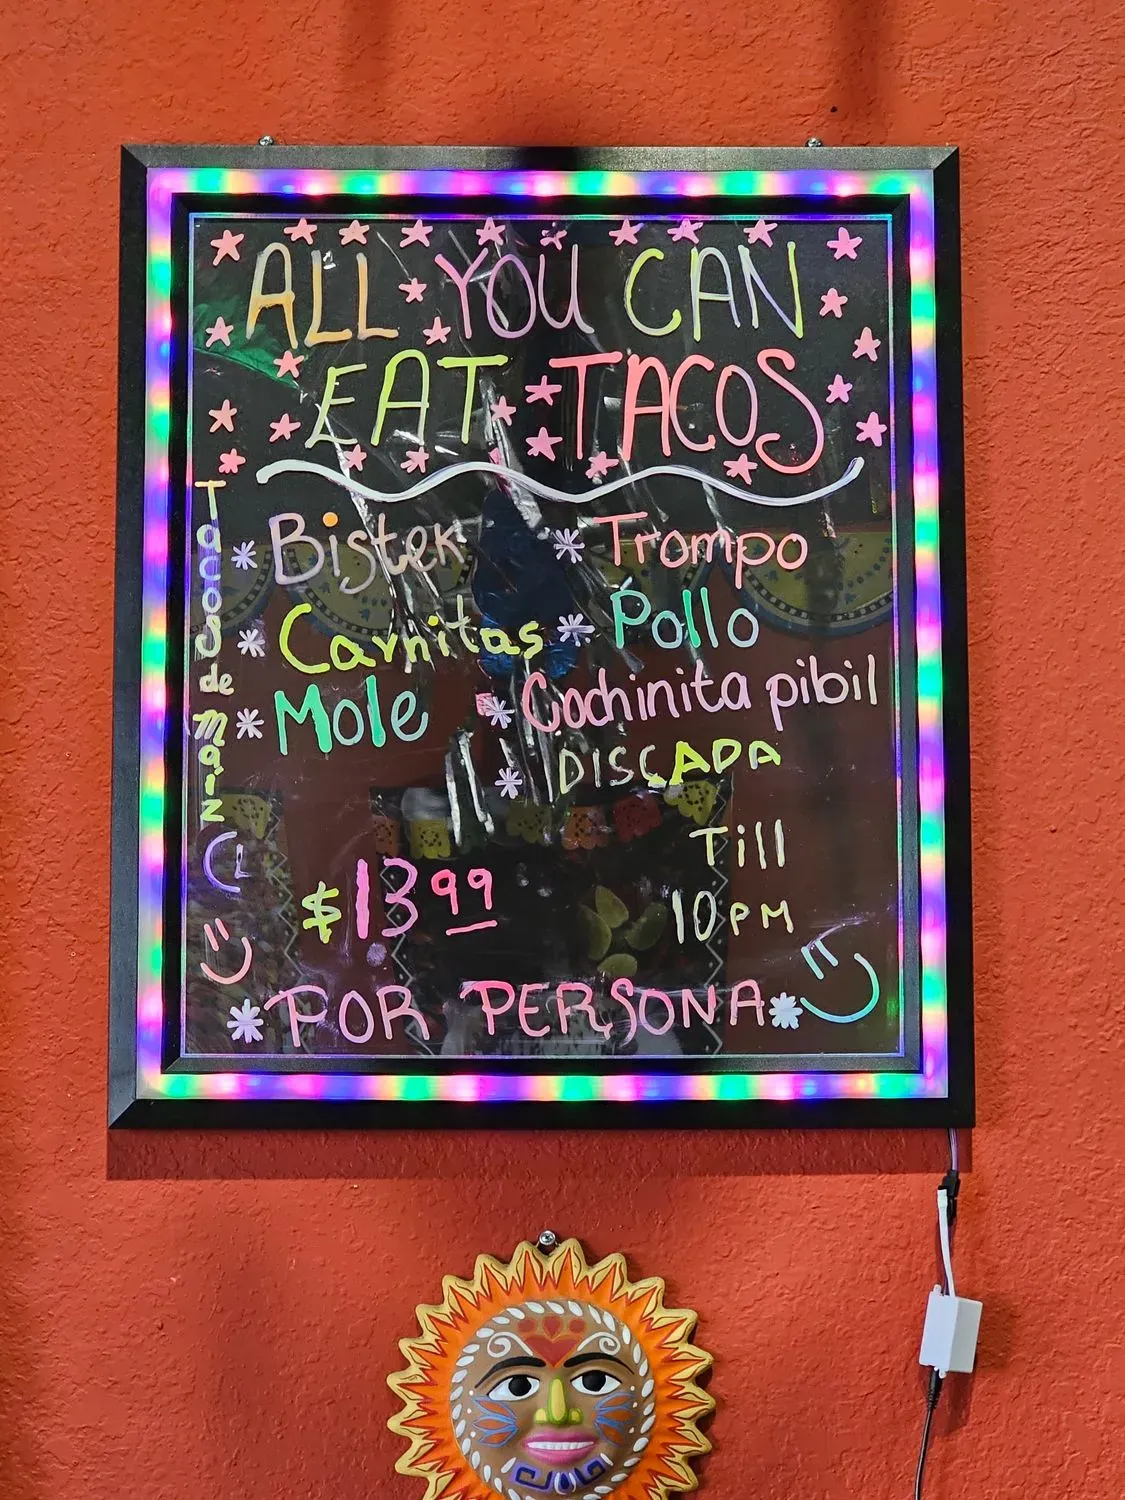 ALL YOU CAN
EAT TACOS
Tacos de Maíz
Bistek
Trompo
Carnitas
Pollo
Mole
Cochinita pibil
DISCADA
$13.99
Till
10PM
POR PERSONA